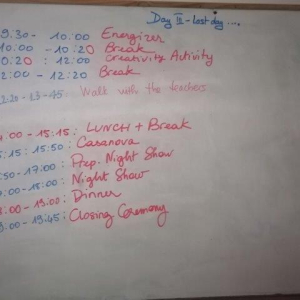 Day III - last day ....
9.30 - 10:00 Energizer
10:00 - 10:20 Break
10.20 : 12:00 Creativity Activity
12:00 - 12:20 Break
12:20 - 13-45: Walk with the teachers
14:00 - 15:15: LUNCH + Break
15:15: 15:50: Casanova
:50 - 17:00: Prep. Night Show
:00 - 18:00: Night Show
18:00 - 19:00: Dinner
19:00 - 19:45: Closing Ceremony